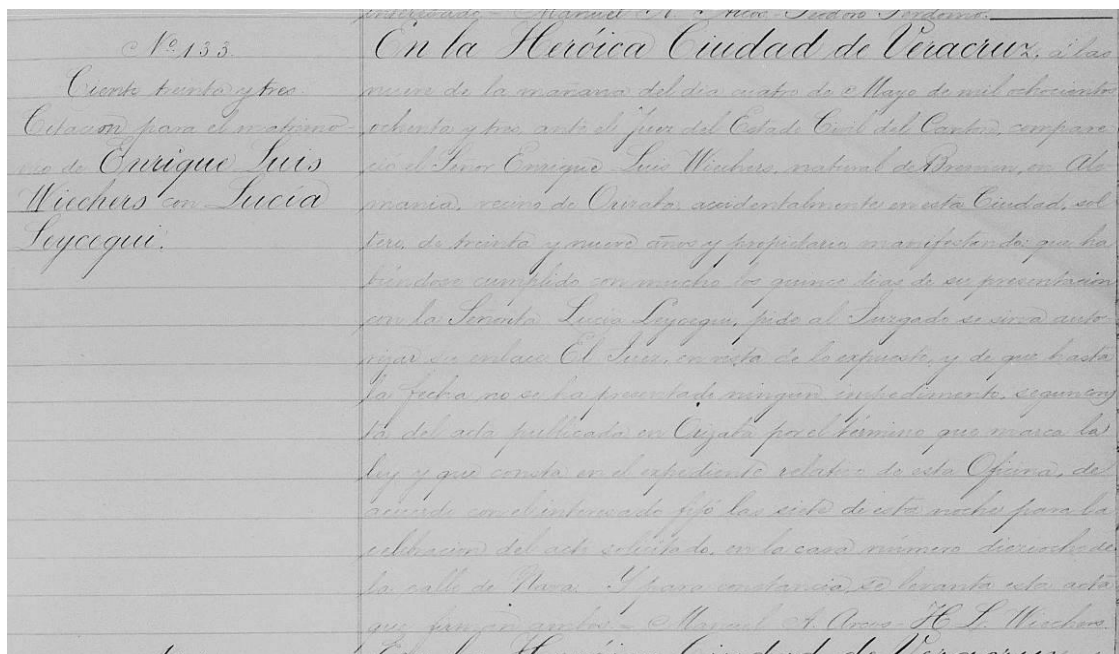 Nº 133.
Ciento treinta y tres
Citacion para el matrimo-
nio de Enrique Luis
Wiechers con Lucía
Leycegui.
insertando - Manuel A.
En la Heróica Ciudad de Veracruz, á las
nueve de la mañana del dia cuatro de Mayo de mil ochocientos
ochenta y tres, ante el Juez del Estado Civil del Canton, compare-
ció el Señor Enrique Luis Wiechers, natural de Bremen, en Ale
mania, vecino de Orizaba, accidentalmente en esta Ciudad, sol
tero, de treinta y nueve años y propietario manifestando: que ha
biendose cumplido con mucho los quince dias de su presentacion
con la Señorita Lucía Leycegui, pide al Juzgado se sirva auto-
rizar su enlace. El Juez, en vista de lo expuesto, y de que hasta
la fecha no se ha presentado ningun impedimento, segun cons
ta del acta publicada en Orizaba por el término que marca la
ley y que consta en el expediente relativo de esta Oficina, de
acuerdo con el interesado fijó las siete de esta noche para la
celebracion del acto solicitado, en la casa número dieziocho de
la calle de Nava. Y para constancia, se levanta esta acta
que firman ambos - Manuel A. - H. L. Wiechers
En la Heróica Ciudad de Veracruz